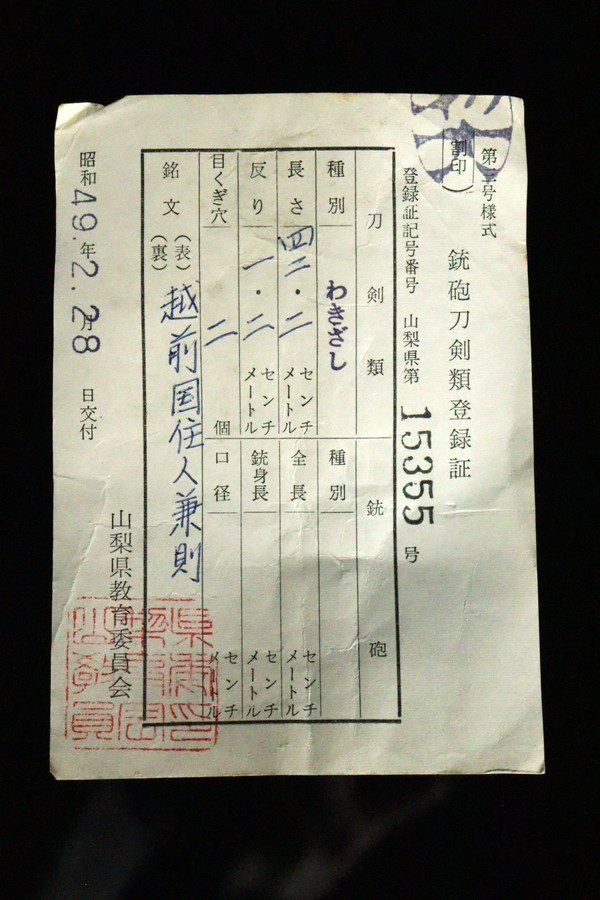 第二号様式
(割印)
銃砲刀剣類登録証
登録証記号番号 山梨県第 15355 号
刀剣類
種別 わきざし
長さ 四二・二 センチメートル
反り 一・二 センチメートル
目くぎ穴 二 個
銘文 (表) 越前国住人兼則
(裏)
銃砲
種別
全長 センチメートル
銃身長 センチメートル
口径 センチメートル
昭和 49年 2.月 28 日交付
山梨県教育委員会